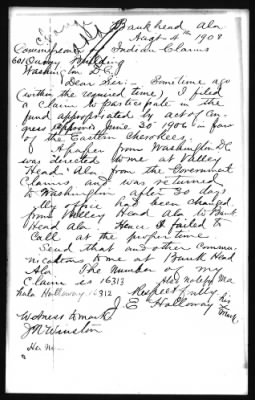 Bankhead Ala
Augt - 4th 1908
Commissioner of Indian Claims
601 Ouray Building
Washington D.C.
Dear Sir:- Sometime ago
(within the required time), I filed
a Claim to participate in the
fund appropriated by act of Con-
gress approved June 30 1906 in favor
of the Eastern Cherokees,
A paper from Washington DC
was directed to me at Valley
Head Ala from the Government
Claims and was returned
to Washington after 30 days
My office has been changed
from Valley Head Ala to Bank
Head Ala Hence I failed to
Call at the proper time
Send that and other Commu-
nications to me at Bank Head
Ala The Number of my
Claim is 16313 Also notify Ma
hala Holloway 16312 Respectfully
J E Holloway his
mark
Witness to mark
J M Winston